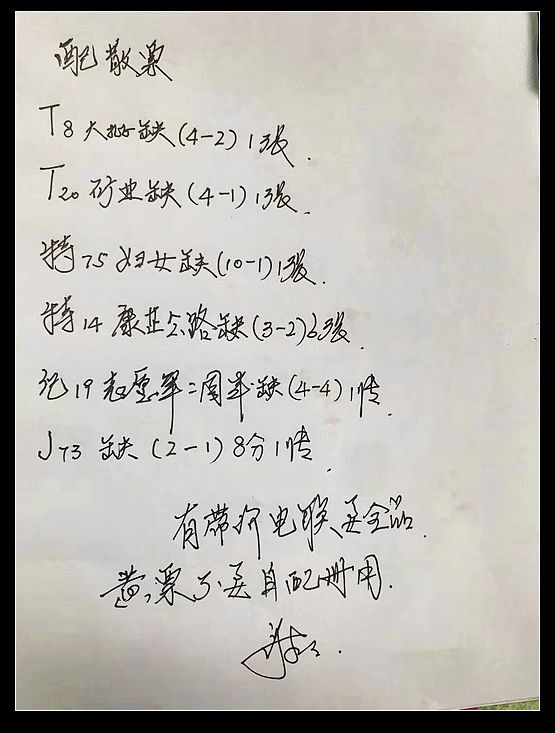 配散票
T8 大桥缺(4-2)1张.
T20 矿业缺(4-1)1张.
特75 妇女缺(10-1)1张.
特14 康芷公路缺(3-2)3张.
纪19 志愿军二周年缺(4-4)1张.
J73 缺(2-1)8分1张.
有带价电联要全品.
黄票不要自配册用.